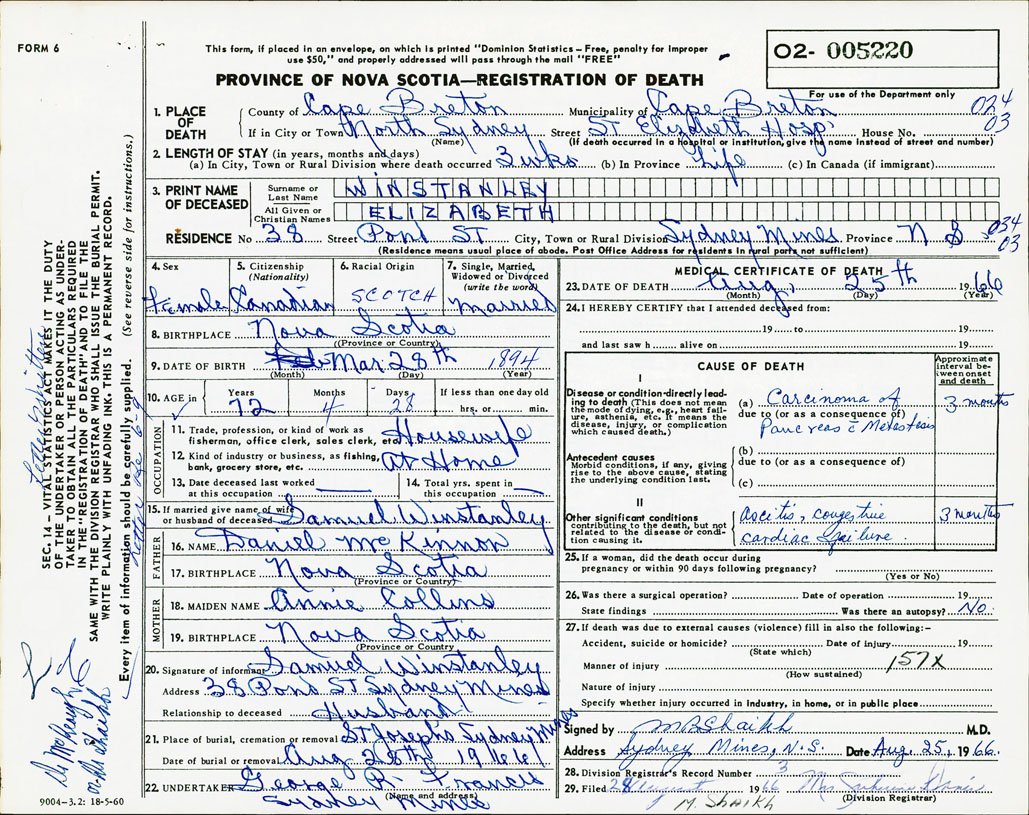 FORM 6
This form, if placed in an envelope, on which is printed "Dominion Statistics – Free, penalty for improper
use $50," and properly addressed will pass through the mail "FREE"
PROVINCE OF NOVA SCOTIA—REGISTRATION OF DEATH
02- 005220
For use of the Department only
024
03
1. PLACE OF DEATH
County of Cape Breton Municipality of Cape Breton
If in City or Town North Sydney Street St Elizabeth Hosp. House No.
(Name) (If death occurred in a hospital or institution, give the name instead of street and number)
2. LENGTH OF STAY (in years, months and days)
(a) In City, Town or Rural Division where death occurred 3 wks (b) In Province Life (c) In Canada (if immigrant)
3. PRINT NAME OF DECEASED
Surname or Last Name WINSTANLEY
All Given or Christian Names ELIZABETH
RESIDENCE No 38 Street Pond ST City, Town or Rural Division Sydney Mines Province N S
034
03
(Residence means usual place of abode. Post Office Address for residents in rural parts not sufficient)
4. Sex Female
5. Citizenship (Nationality) Canadian
6. Racial Origin SCOTCH
7. Single, Married, Widowed or Divorced (write the word) Married
8. BIRTHPLACE Nova Scotia
(Province or Country)
9. DATE OF BIRTH Feb Mar 28th 1894
(Month) (Day) (Year)
10. AGE in Years 72 Months 4 Days 28 If less than one day old hrs. or min.
OCCUPATION
11. Trade, profession, or kind of work as fisherman, office clerk, sales clerk, etc. Housewife
12. Kind of industry or business, as fishing, bank, grocery store, etc. At Home
13. Date deceased last worked at this occupation
14. Total yrs. spent in this occupation
15. If married give name of wife or husband of deceased Samuel Winstanley
FATHER
16. NAME Daniel McKinnon
17. BIRTHPLACE Nova Scotia
(Province or Country)
MOTHER
18. MAIDEN NAME Annie Collins
19. BIRTHPLACE Nova Scotia
(Province or Country)
20. Signature of informant Samuel Winstanley
Address 38 Pond ST Sydney Mines
Relationship to deceased Husband
21. Place of burial, cremation or removal St Josephs Sydney Mines
Date of burial or removal Aug 28th 1966
22. UNDERTAKER George R. Francis
(Name and address)
Sydney Mines
9004-3.2: 18-5-60
MEDICAL CERTIFICATE OF DEATH
23. DATE OF DEATH Aug. 25th 1966
(Month) (Day) (Year)
24. I HEREBY CERTIFY that I attended deceased from:
19 to 19
and last saw h alive on 19
CAUSE OF DEATH
Approximate interval between onset and death
I
Disease or condition directly leading to death (This does not mean the mode of dying, e.g., heart failure, asthenia, etc. It means the disease, injury, or complication which caused death.)
(a) Carcinoma of 3 months
due to (or as a consequence of)
Pancreas c̄ Metastasis
Antecedent causes
Morbid conditions, if any, giving rise to the above cause, stating the underlying condition last.
(b)
due to (or as a consequence of)
(c)
II
Other significant conditions contributing to the death, but not related to the disease or condition causing it.
Ascitis, congestive 3 months
cardiac failure.
25. If a woman, did the death occur during
pregnancy or within 90 days following pregnancy?
(Yes or No)
26. Was there a surgical operation? Date of operation 19
State findings Was there an autopsy? No.
27. If death was due to external causes (violence) fill in also the following:–
Accident, suicide or homicide? Date of injury 19
(State which)
Manner of injury 157X
(How sustained)
Nature of injury
Specify whether injury occurred in Industry, in home, or in public place
Signed by M B Shaikh M.D.
Address Sydney Mines, N.S. Date Aug. 25, 1966.
28. Division Registrar's Record Number 3
29. Filed 28 August 1966 Mrs
(Division Registrar)
M. Shaikh
SEC. 14 – VITAL STATISTICS ACT MAKES IT THE DUTY
OF THE UNDERTAKER OR PERSON ACTING AS UNDERTAKER TO OBTAIN ALL THE PARTICULARS REQUIRED
IN THE "REGISTRATION OF DEATH" AND TO FILE THE
SAME WITH THE DIVISION REGISTRAR WHO SHALL ISSUE THE BURIAL PERMIT.
WRITE PLAINLY WITH UNFADING INK. THIS IS A PERMANENT RECORD.
Every item of information should be carefully supplied. (See reverse side for instructions.)
Letter written
Letter